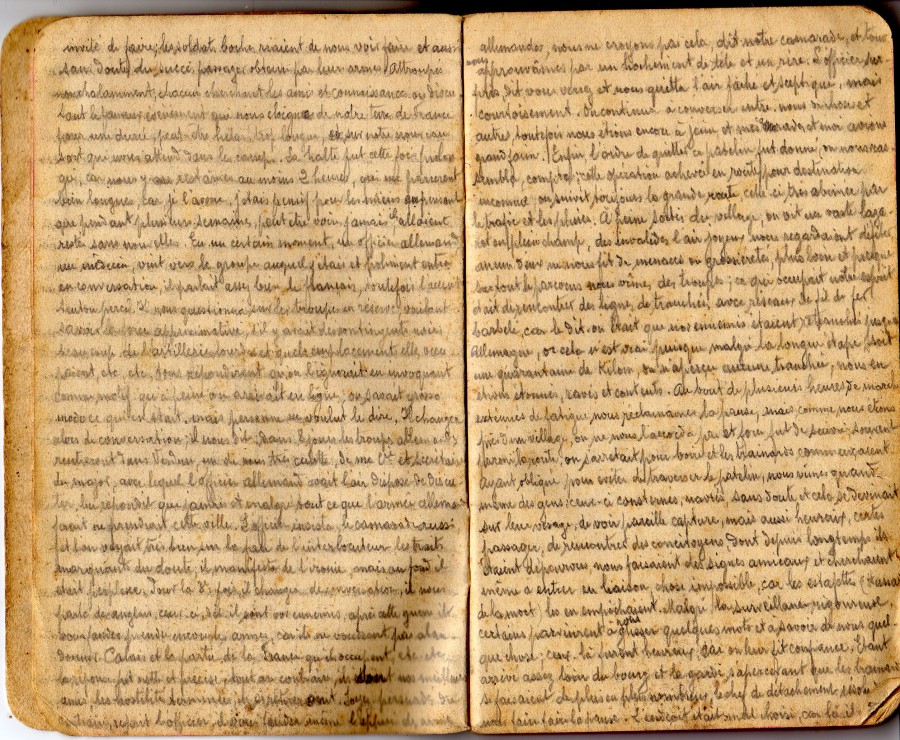 invité de faire; les soldats boches riaient de nous voir faire et aussi
sans doute du succès passager obtenu par leurs armes. Attroupés
nonchalamment, chacun cherchant les amis et connaissance ou discu
tant le fameux évènement qui nous éloigne de notre terre de France
pour une durée peut-être hélas trop longue, et sur notre nouveau
sort qui nous attend dans les camps. La halte fut cette fois prolon
gée, car nous y restâmes au moins 2 heures, qui me parurent
bien longues car je l'avoue, j'étais pensif pour les miens qui pensant
que pendant plusieurs semaines, peut être voir jamais allaient
resté sans nouvelles. En un certain moment, un officier allemand
un médecin, vint vers le groupe auquel j'étais et poliment entre
en conversation, il parlait assez bien le français, toutefois l'accent
teuton perçait. Il nous questionna sur les troupes en réserve voulant
savoir la force approximative, s'il y avait des contingents noirs
beaucoup d'artillerie lourde et quels emplacement elle occu
paient, etc, etc. Tous répondirent qu'on l'ignorait en invoquant
comme motif qu'à peine on arrivait en ligne; on savait grosso
modo ce qu'il en était, mais personne ne voulut le dire. Il changea
alors de conversation; il nous dit; dans 2 jours les troupes allemandes
rentreront dans Verdun, un de nous très culotté, de ma Cie et secrétaire
du major, avec lequel l'officier allemand avait l'air disposé de discu
ter, lui répondit que jamais et malgré tout ce que l'armée allemande
ferait on prendrait cette ville. L'officier insista, le camarade aussi
et l'on voyait très bien sur la face de l'interlocuteur les traits
marquants du doute, il manifesta de l'ironie, mais au fond il
était perplexe. Pour la 3e fois, il changea de conversation, il nous
parle des anglais, ceux-ci, dit-il sont vos ennemis, après cette guerre ils
vous faudra prendre encore les armes, car ils ne voudront pas aban
donner Calais et la partie de la France qu'ils occupent, etc. etc.
La réponse fut nette et précise, tout au contraire, ils sont nos meilleurs
amis les hostilités terminées, ils partiront. Soyez persuadé du
contraire, repart l'officier,
allemandes, nous ne croyons pas cela, dit notre camarade, et tous
nous approuvâmes par un hochement de tête et un rire. L'officier sur
pris, dit vous verrez et nous quitta l'air fâché et sceptique, mais
courtoisement. On continua à converser entre nous de chose et
autre, toutefois nous étions encore à jeun et mes camarades et moi avions
grand faim. Enfin, l'ordre de quitter ce patelin fut donné, on nous ras-
sembla, compta; cette opération achevée en route pour destination
inconnue, on suivit toujours la grande route celle-ci très abîmée par
le trafic et les pluies. A peine sortis du village, on vit un vaste laza-
ret en plein champ, des invalides l'air joyeux nous regardaient défiler
aucun d'eux ne nous fit de menaces ou grossièretés, plus loin et presque
sur tout le parcours nous vîmes, des troupes; ce qui occupait notre esprit
était de rencontrer des lignes de tranchées avec réseaux de fil de fer
barbelé, car le dit-on était que nos ennemis étaient retranchés jusqu'en
Allemagne, or cela n'est vrai puisque malgré la longue étape soit
une quarantaine de Kilom, on n'aperçu aucune tranchée, nous en
étions étonnés, ravis et contents. Au bout de plusieurs heures de marche
exténués de fatigue nous réclamâmes la pause, mais comme nous étions
près d'un village, on ne nous l'accorda pas et force fut de suivre; souvent
parmi la route, on s'arrêtait pour boire et les trainards commençaient.
Ayant obliqué pour éviter de traverser le patelin, nous vîmes quand
même des gens; ceux-ci consternés, navrés sans doute et cela se devinait
sur leur visage, de voir pareille capture, mais aussi heureux, certes
passager, de rencontrer des concitoyens dont depuis longtemps ils
étaient dépourvus nous faisaient des signes amicaux et cherchaient
même à entrer en liaison chose impossible, car les estafettes
de la mort) les en empêchaient. Malgré la surveillance rigoureuse,
certains parvinrent à nous glisser quelques mots et a savoir de nous quel-
que chose; ceux-là furent heureux, car on leur fit confiance. Etant
arrivé assez loin du bourg et la garde, s'apercevant que les trainards
se faisaient de plus en plus nombreux, le chef de détachement
fair faire la pause. L'endroit était mal choisi, car là il